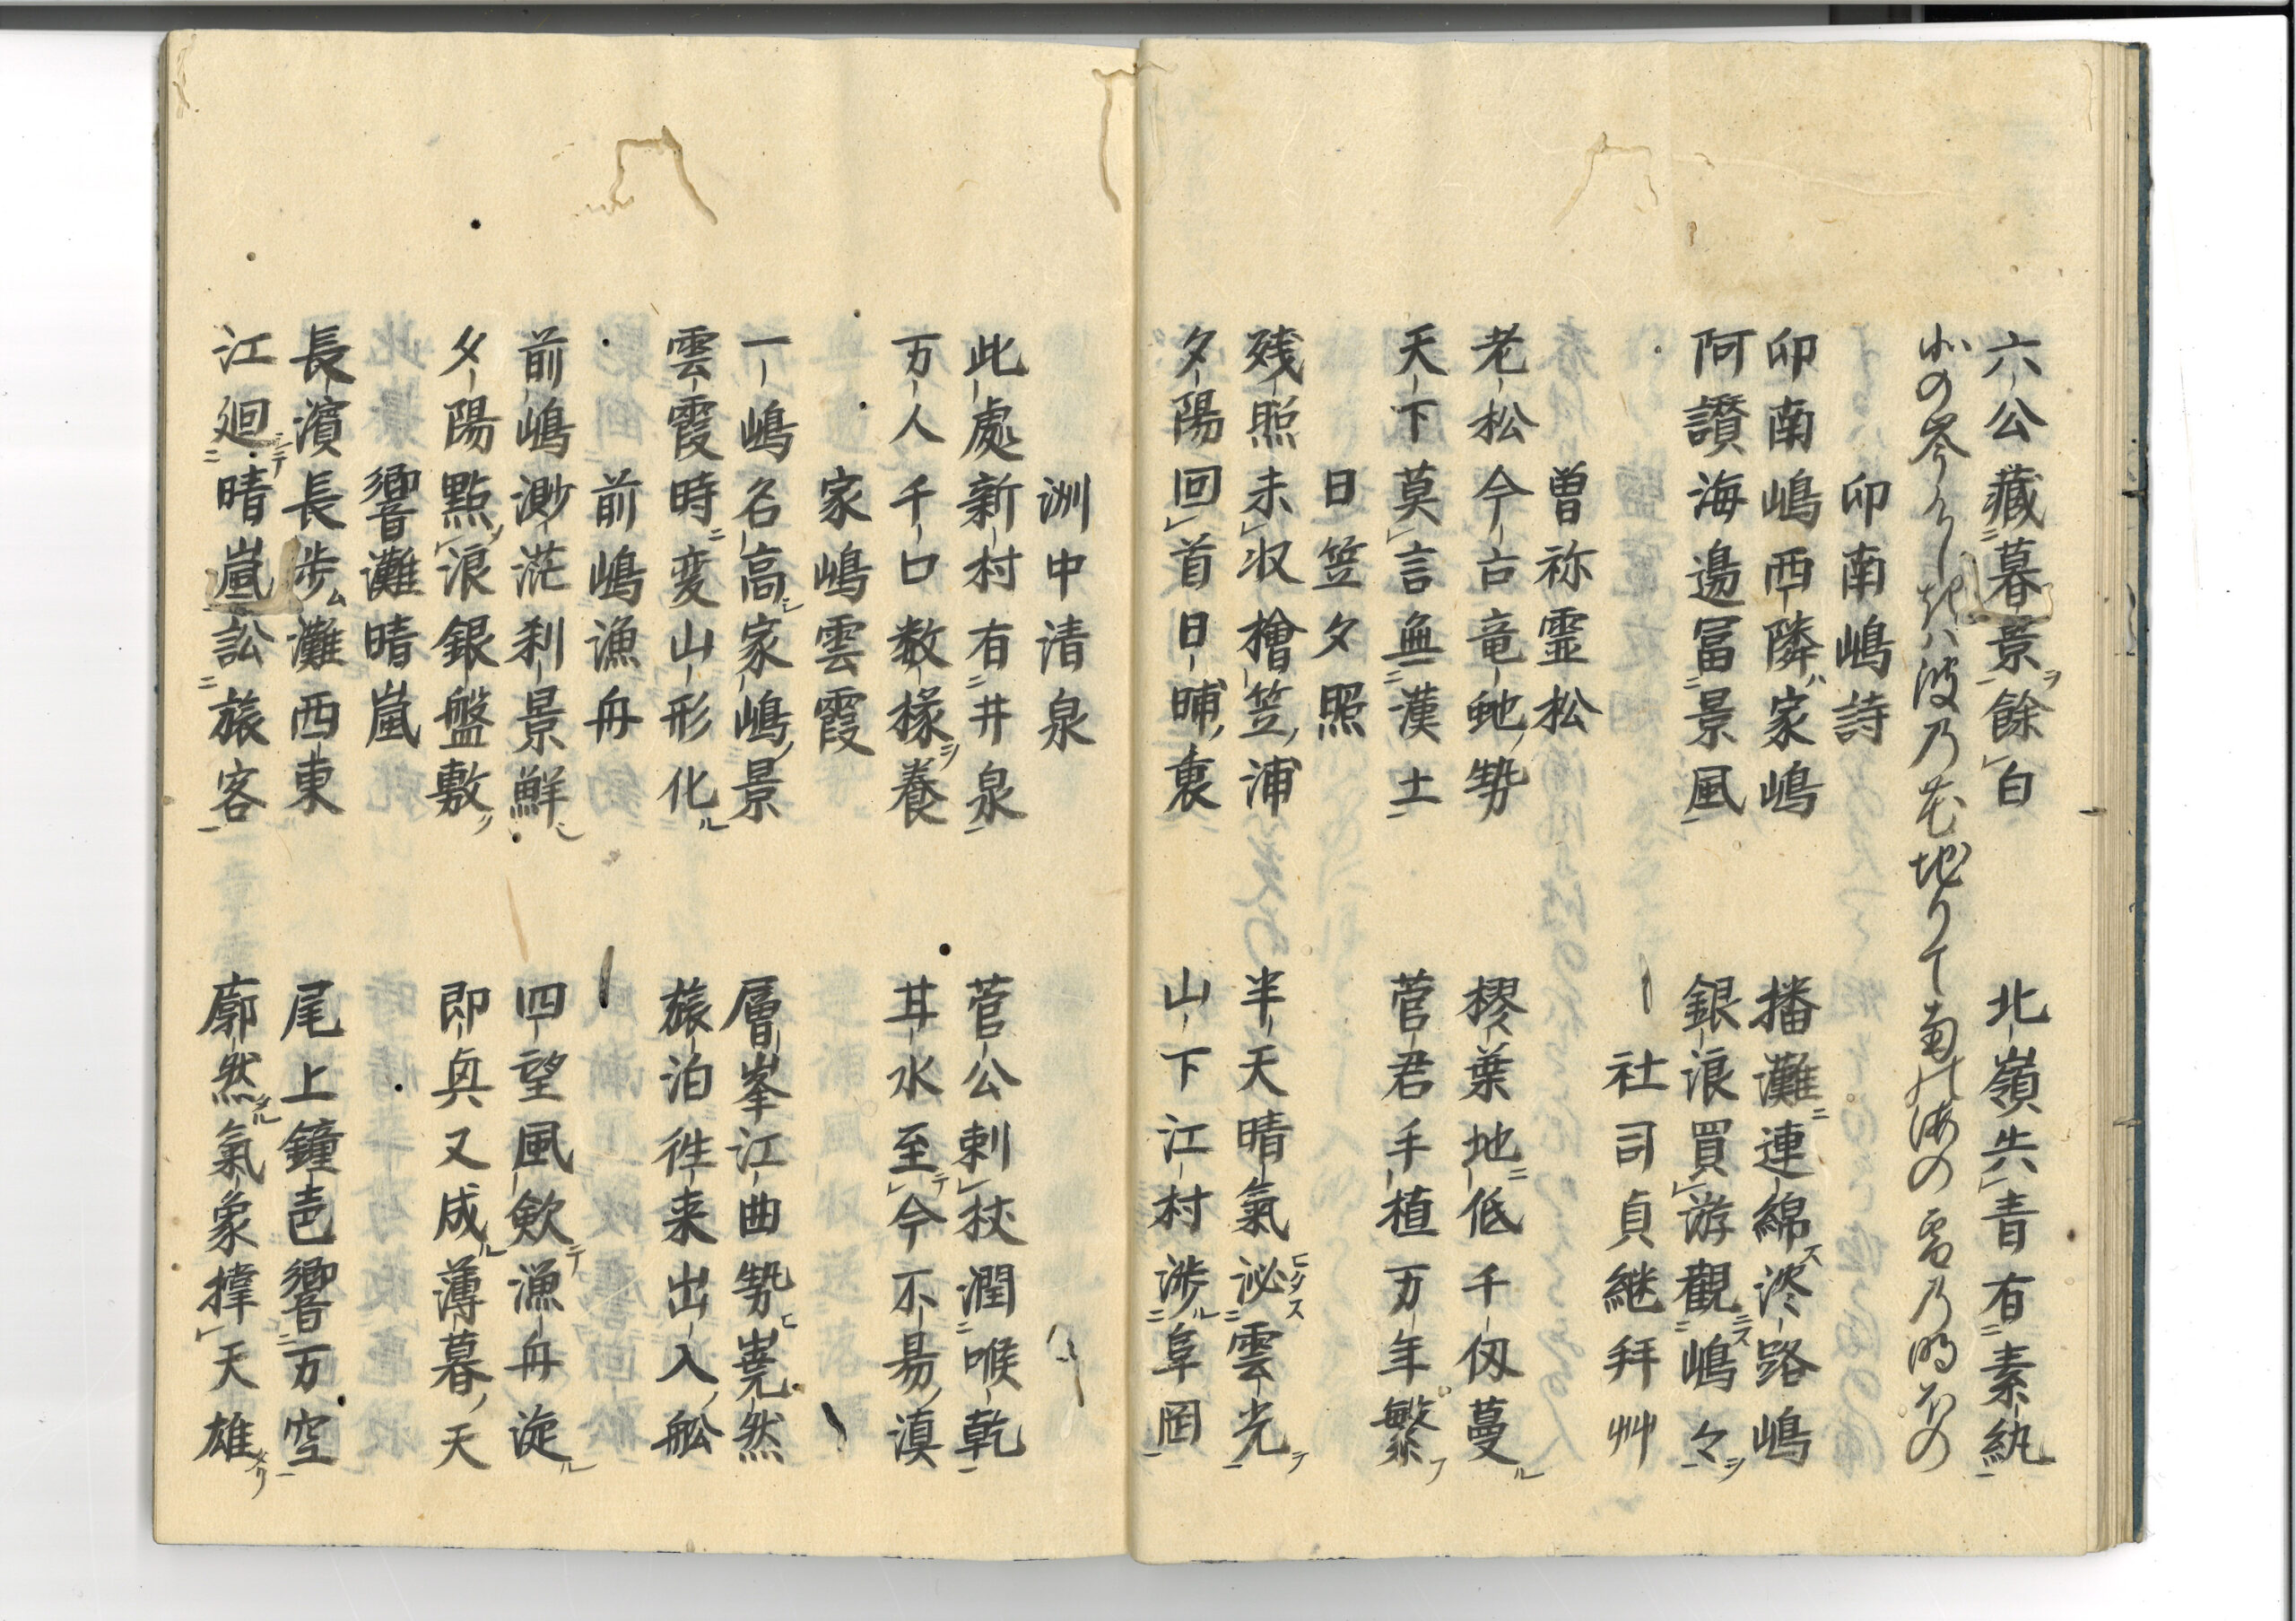 六公藏暮景餘白　北嶺共青有素紈
卯南嶋詩
卯南嶋西隣家嶋　播灘連綿淡路嶋
阿讃海邉冨景風　銀浪買游觀嶋々
社司貞継拜艸
曽祢霊松
老松今古竜虵勢　樛葉地低千仭蔓
天下莫言無漢土　菅君手植万年繁
日笠夕照
残照未収檜笠浦　半天晴氣泌雲光
夕陽回首日晡裏　山下江村渉阜岡
洲中清泉
此處新村有井泉　菅公刺杖潤喉乾
万人千口数椽養　井水至今不易湏
家嶋雲霞
一嶋名高家嶋景　層峯江曲勢嶤然
雲霞時変山形化　旅泊徃来出入舩
前嶋漁舟
前嶋渺茫刹景鮮　四望風欸漁舟淀
夕陽點浪銀盤敷　即興又成薄暮天
響灘晴嵐
長濱長歩灘西東　尾上鐘声響万空
江廻晴嵐訟旅客　廓然氣象撑天雄